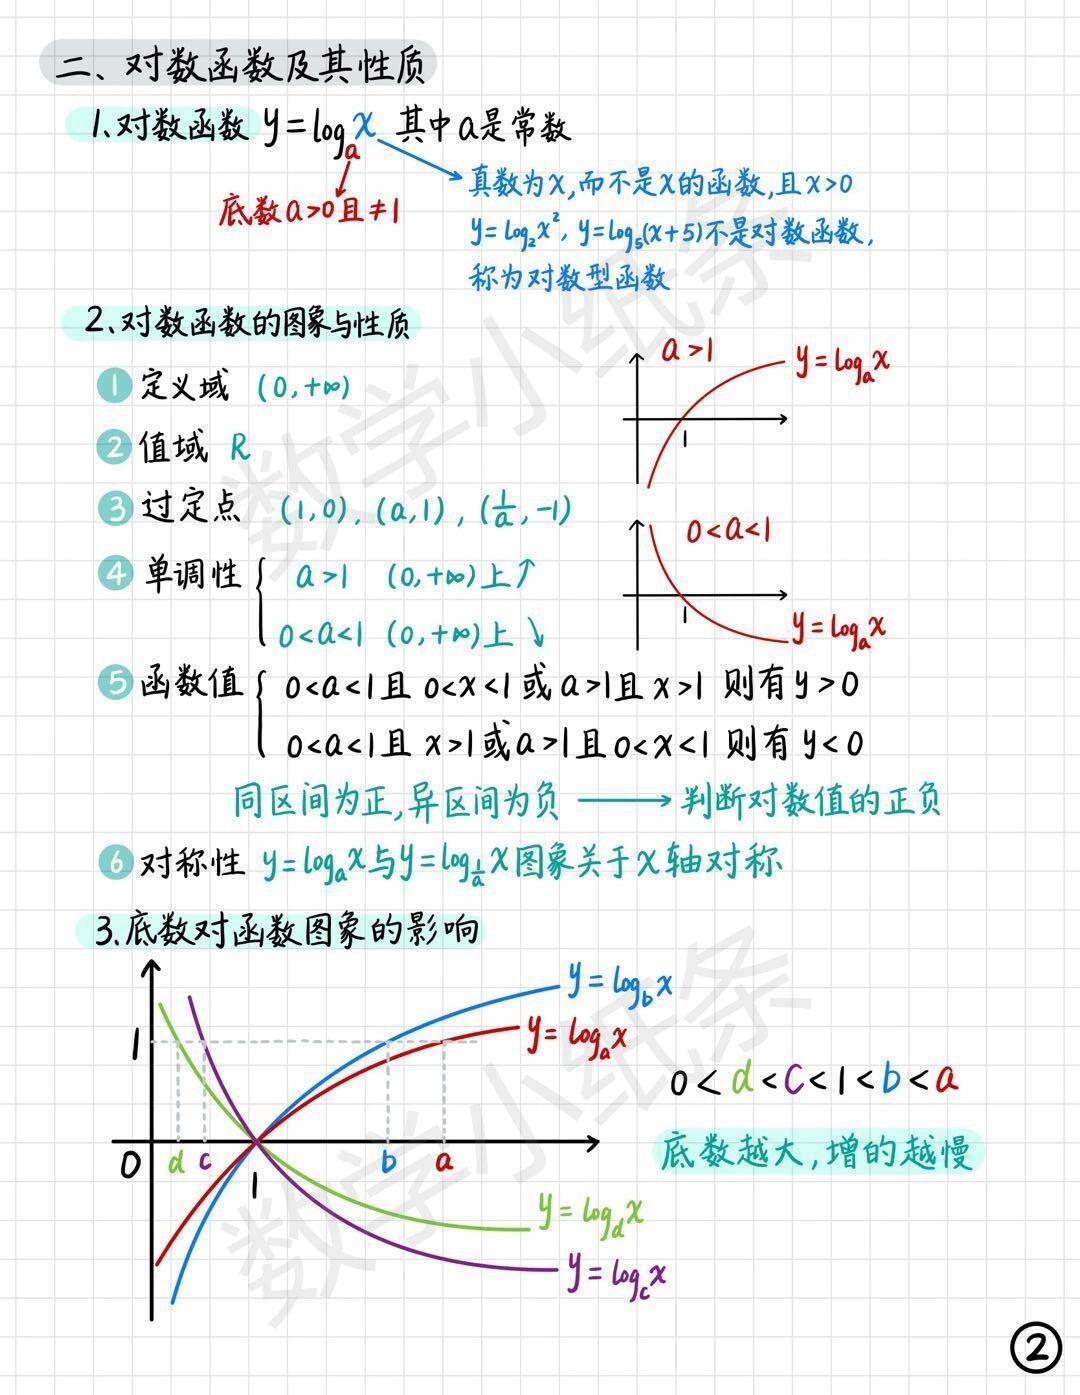 二、对数函数及其性质
1、对数函数 y=logₐx 其中a是常数
真数为x,而不是x的函数,且x>0
底数a>0且≠1
y=log₂x², y=log₅(x+5)不是对数函数,
称为对数型函数
2、对数函数的图象与性质
a>1
y=logₐx
1
① 定义域 (0,+∞)
② 值域 R
③ 过定点 (1,0), (a,1), (1/a,-1)
0<a<1
1
y=logₐx
④ 单调性 { a>1 (0,+∞)上↑
0<a<1 (0,+∞)上↘
⑤ 函数值 { 0<a<1且 0<x<1 或 a>1且 x>1 则有 y>0
0<a<1且 x>1或a>1且0<x<1 则有 y<0
同区间为正,异区间为负 → 判断对数值的正负
⑥ 对称性 y=logₐx与y=log_{1/a}x图象关于x轴对称
3、底数对函数图象的影响
y=log_b x
y=logₐx
1
0<d<c<1<b<a
0 d c 1 b a
底数越大,增的越慢
y=log_d x
y=log_c x
②
数学小纸条
数学小纸条